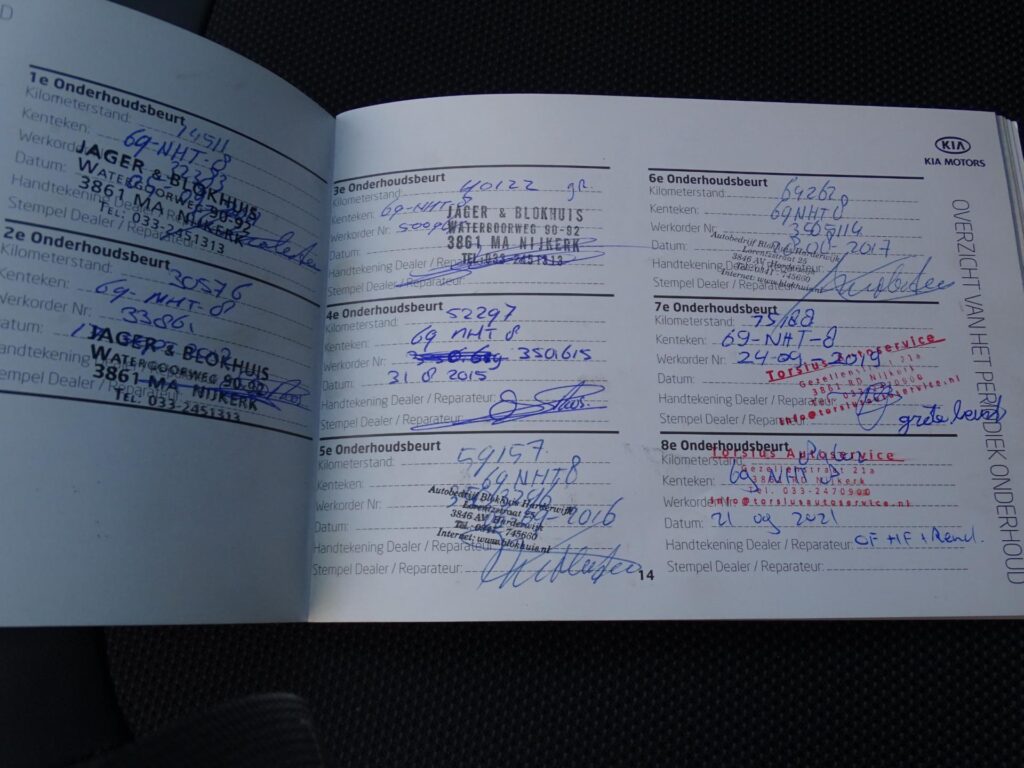 D
1e Onderhoudsbeurt
Kilometerstand: 14511
Kenteken: 69-NHT-8
Werkorder
Datum:
Handtekening Dealer / Re
Stempel Dealer / Reparateur:
JAGER & BLOKHUIS
WATERGOORWEG 90-92
3861 MA NIJKERK
TEL: 033-2451313
2e Onderhoudsbeurt
Kilometerstand: 30576
Kenteken: 69-NHT-8
Werkorder Nr: 33861
Datum:
Handtekening Dealer / Reparateur
Stempel Dealer / Reparateur:
JAGER & BLOKHUIS
WATERGOORWEG 90-92
3861 MA NIJKERK
TEL: 033-2451313
3e Onderhoudsbeurt
Kilometerstand: 40122 gr.
Kenteken: 69-NHT-8
Werkorder Nr:
Datum:
Handtekening Dealer / Reparateur
Stempel Dealer / Reparateur:
JAGER & BLOKHUIS
WATERGOORWEG 90-92
3861 MA NIJKERK
TEL: 033-2451313
4e Onderhoudsbeurt
Kilometerstand: 52297
Kenteken: 69 NHT 8
Werkorder Nr: 3501615
Datum: 31 8 2015
Handtekening Dealer / Reparateur:
Stempel Dealer / Reparateur:
5e Onderhoudsbeurt
Kilometerstand: 59157
Kenteken: 69 NHT 8
Werkorder Nr:
Datum: 2016
Handtekening Dealer / Reparateur:
Stempel Dealer / Reparateur:
Autobedrijf Blokhuis Harderwijk
Lorentzstraat 25
3846 AV Harderwijk
Tel. 0341 - 745660
Internet: www.blokhuis.nl
14
KIA
KIA MOTORS
6e Onderhoudsbeurt
Kilometerstand: 64262
Kenteken: 69NHT8
Werkorder Nr:
Datum: 2017
Handtekening Dealer / Reparateur:
Stempel Dealer / Reparateur:
Autobedrijf Blokhuis Harderwijk
Lorentzstraat 25
3846 AV Harderwijk
Tel. 0341 - 745660
Internet: www.blokhuis.nl
7e Onderhoudsbeurt
Kilometerstand: 75188
Kenteken: 69-NHT-8
Werkorder Nr: 24-09-2019
Datum:
Handtekening Dealer / Reparateur:
Stempel Dealer / Reparateur:
Torsius Autoservice
Gezellenstraat 21a
3861 RD Nijkerk
info@torsiusautoservice.nl
grote beurt
8e Onderhoudsbeurt
Kilometerstand:
Kenteken: 69 NHT 8
Werkorder Nr:
Datum: 21 09 2021
Handtekening Dealer / Reparateur:
Stempel Dealer / Reparateur:
Torsius Autoservice
Gezellenstraat 21a
3861 RD Nijkerk
Tel. 033-2470900
info@torsiusautoservice.nl
OVERZICHT VAN HET PERIODIEK ONDERHOUD